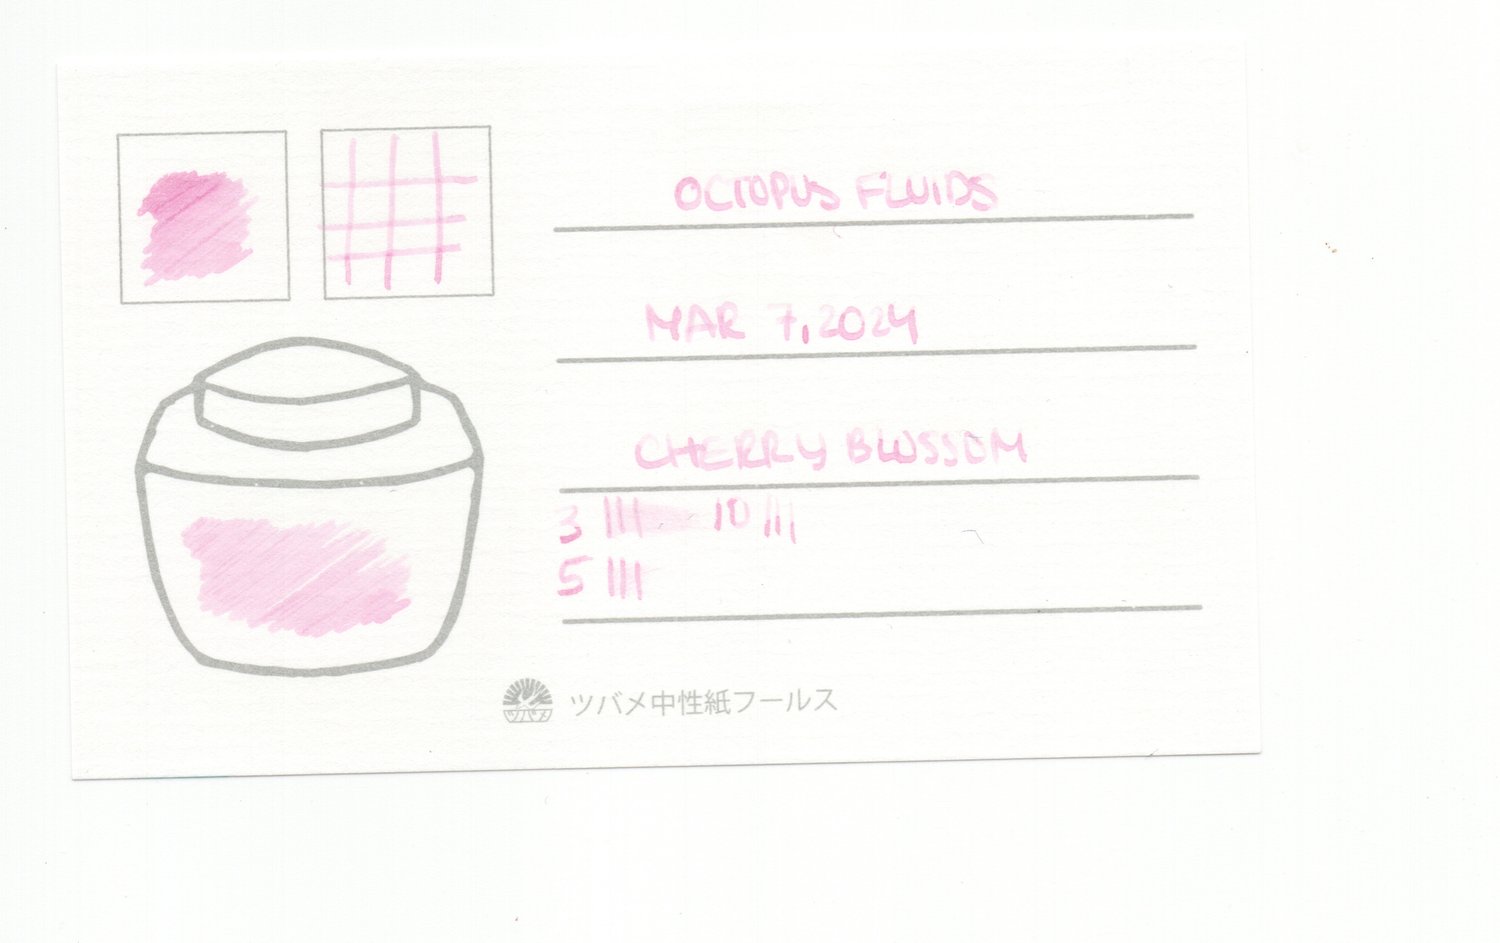 OCTOPUS FLUIDS
MAR 7, 2024
CHERRY BLOSSOM
3 ||| 10 |||
5 |||
ツバメ
ツバメ中性紙フールス